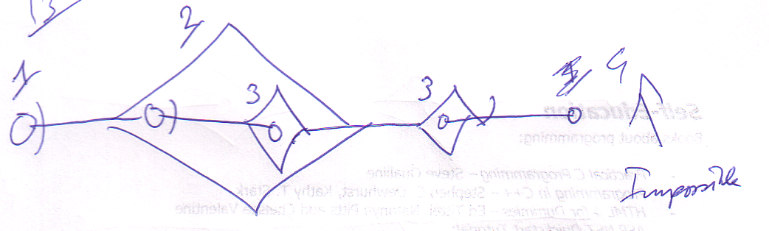 2
1 3 3 4
Impossible
Self-Education
about programming:
Practical C Programming – Steve Oualline
Programming in C++ – Stephen C. Dewhurst, Kathy T. Stark
HTML 4 for Dummies – Ed Tittel, Natanya Pitts and Chelsea Valentine